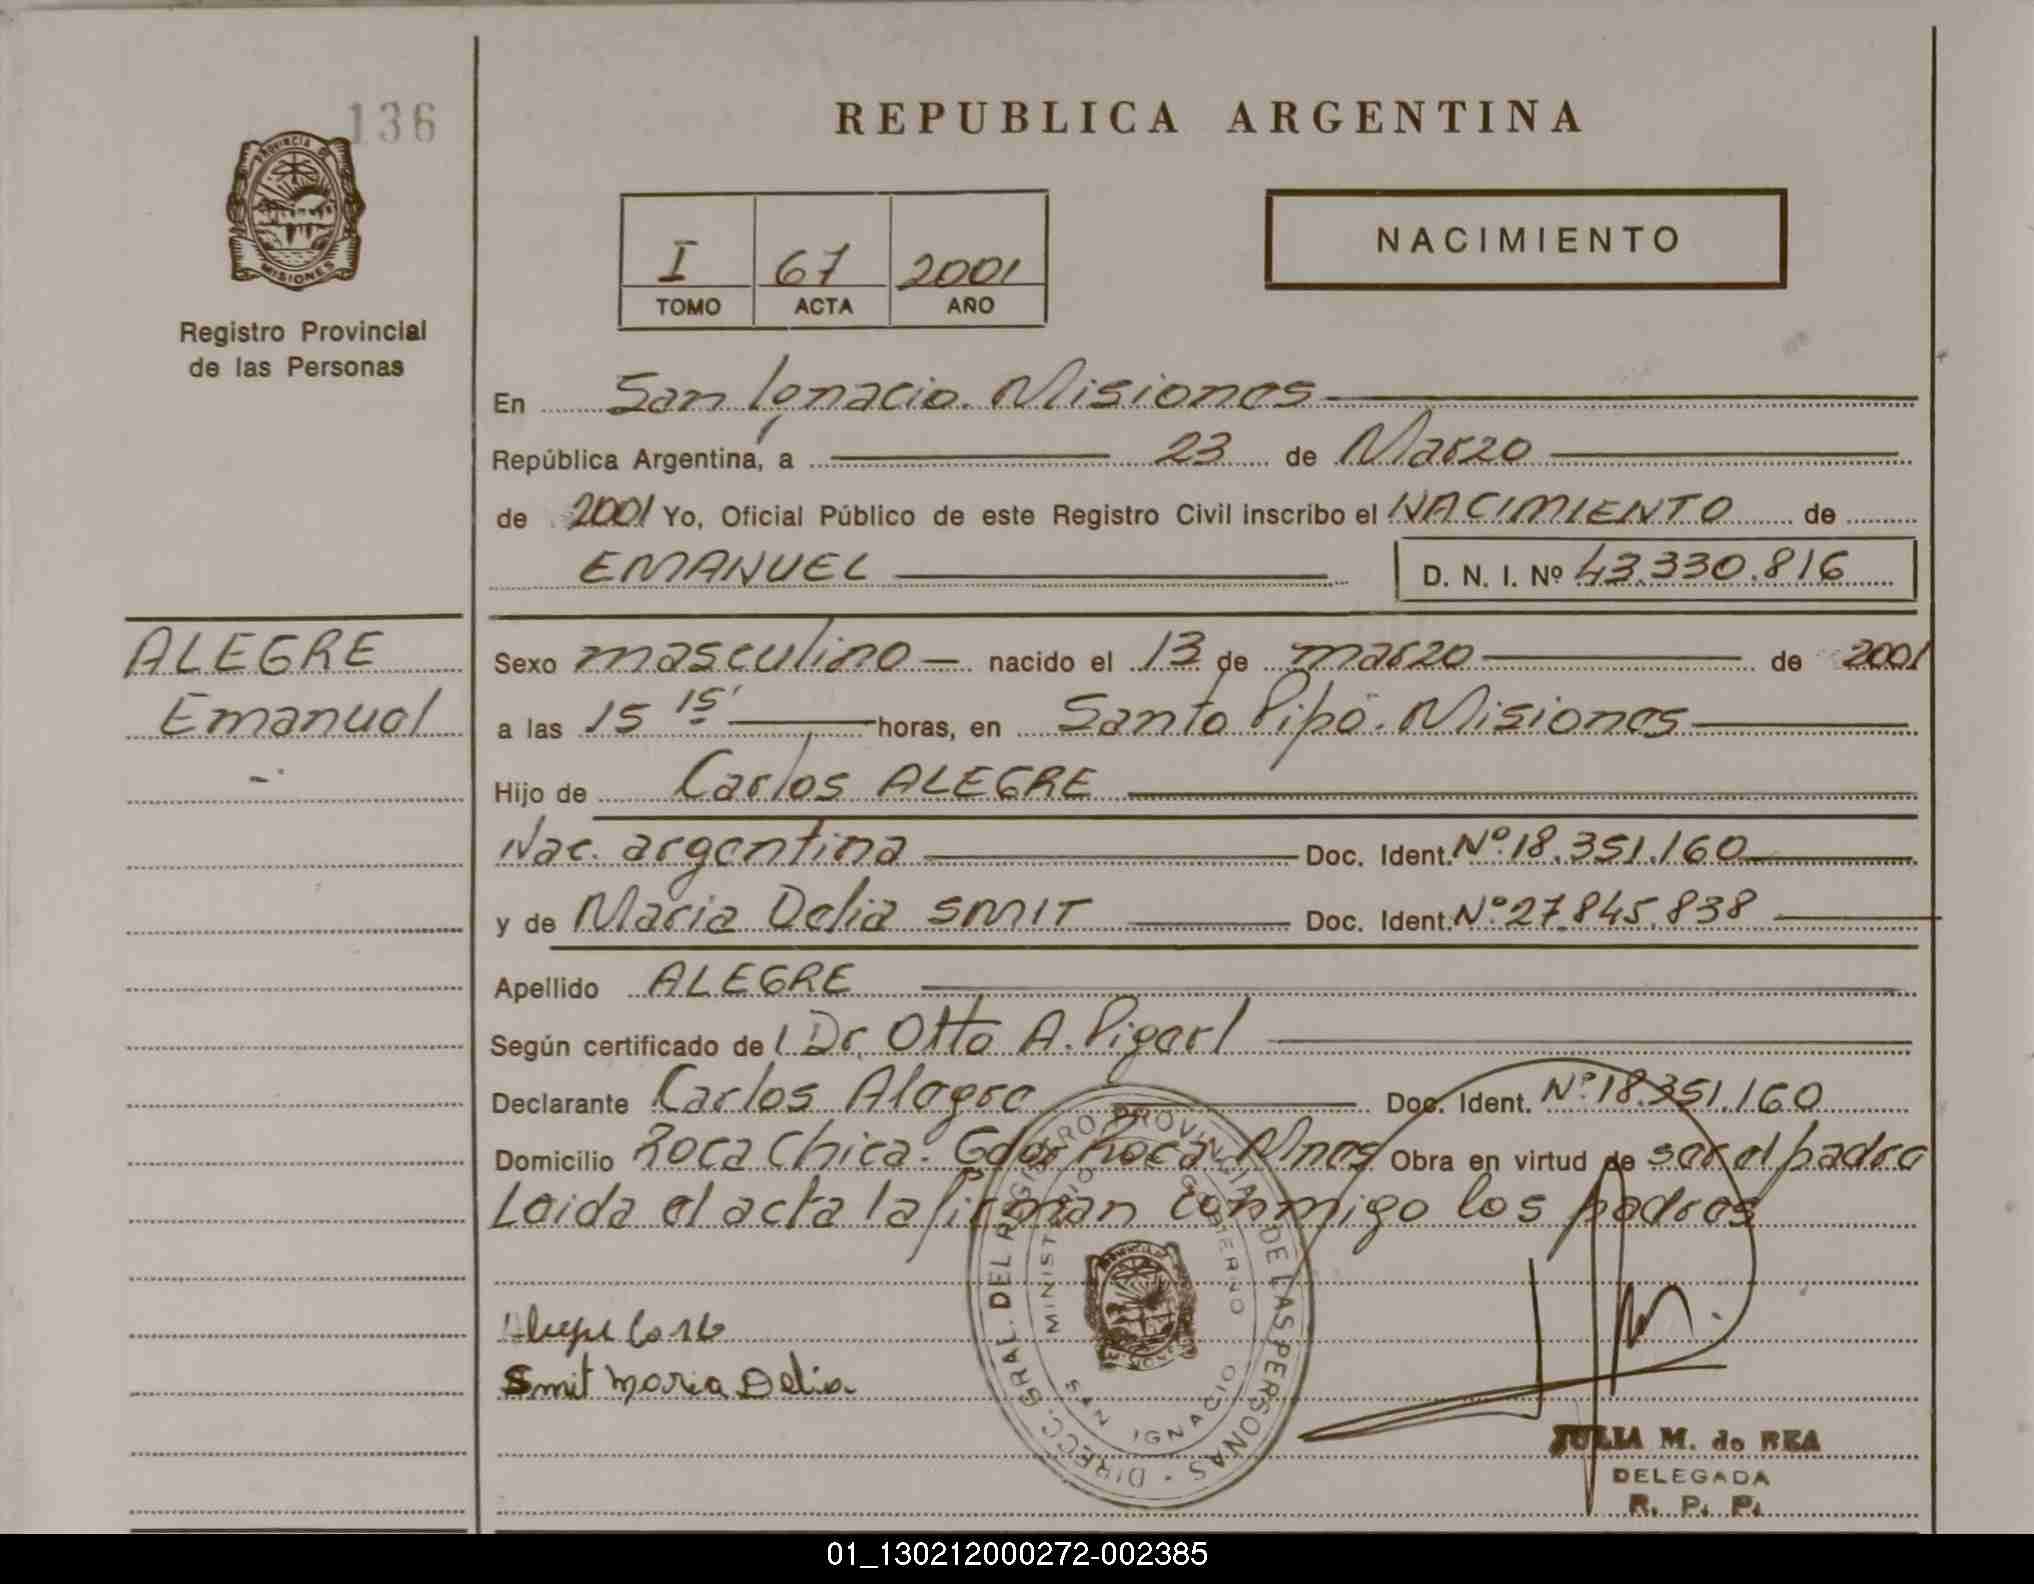 136
PROVINCIA DE
MISIONES
Registro Provincial
de las Personas
REPUBLICA ARGENTINA
I 67 2001
TOMO ACTA AÑO
NACIMIENTO
En San Ignacio. Misiones
República Argentina, a 23 de Marzo
de 2001 Yo, Oficial Público de este Registro Civil inscribo el NACIMIENTO de
EMANUEL D. N. I. Nº 43.330.816
ALEGRE
Emanuel
Sexo masculino nacido el 13 de marzo de 2001
a las 15 15' horas, en Santo Pipó. Misiones
Hijo de Carlos ALEGRE
Nac. argentina Doc. Ident. Nº 18.351.160
y de Maria Delia SMIT Doc. Ident. Nº 27.845.838
Apellido ALEGRE
Según certificado de l Dr. Otto A. Pigerl
Declarante Carlos Alegre Doc. Ident. Nº 18.351.160
Domicilio Roca Chica. Gdor Roca Mnes Obra en virtud de ser el padre
Leida el acta la firman conmigo los padres
Smit Maria Delia
DIRECC. GRAL. DEL REGISTRO PROVINCIAL DE LAS PERSONAS
MINISTERIO GOBIERNO
SAN IGNACIO
JULIA M. de REA
DELEGADA
R. P. P.
01_130212000272-002385